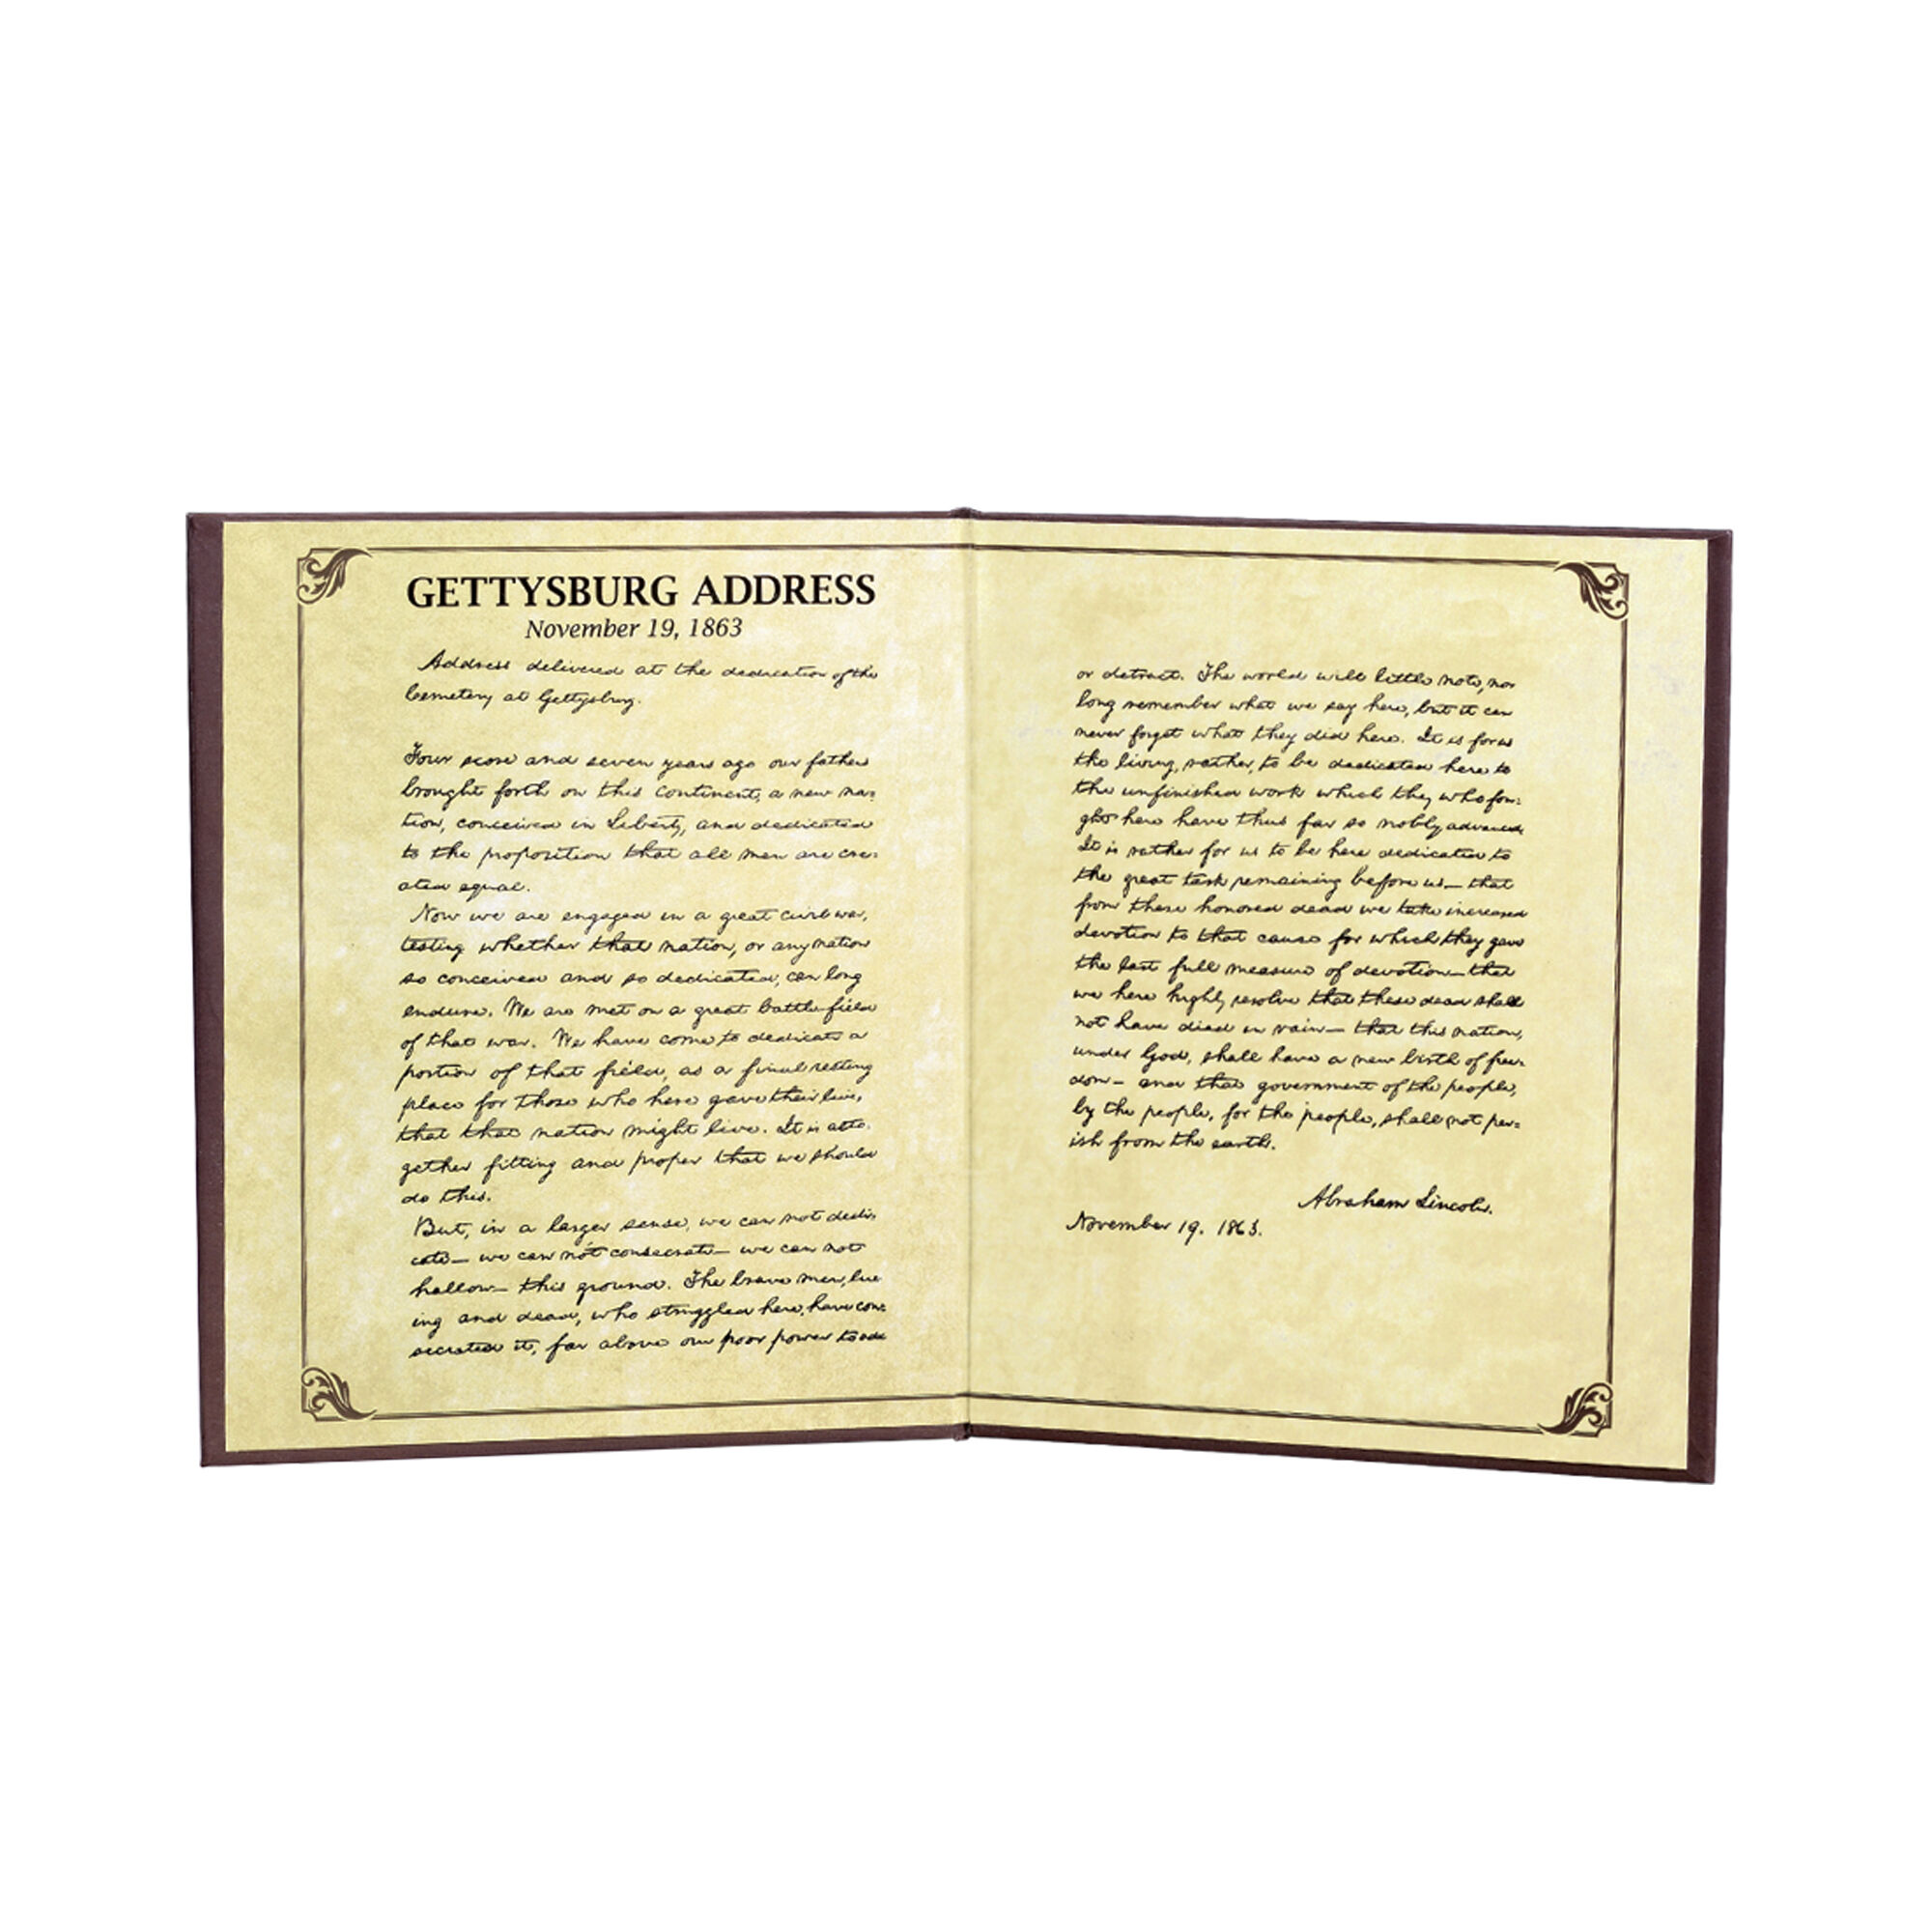 GETTYSBURG ADDRESS
November 19, 1863
Address delivered at the dedication of the
Cemetery at Gettysburg.
Four score and seven years ago our fathers
brought forth on this continent, a new na-
tion, conceived in Liberty, and dedicated
to the proposition that all men are cre-
ated equal.
Now we are engaged in a great civil war,
testing whether that nation, or any nation
so conceived and so dedicated, can long
endure. We are met on a great battle-field
of that war. We have come to dedicate a
portion of that field, as a final resting
place for those who here gave their lives,
that that nation might live. It is alto-
gether fitting and proper that we should
do this.
But, in a larger sense, we can not dedi-
cate— we can not consecrate— we can not
hallow— this ground. The brave men, liv-
ing and dead, who struggled here, have con-
secrated it, far above our poor power to add
or detract. The world will little note, nor
long remember what we say here, but it can
never forget what they did here. It is for us
the living, rather, to be dedicated here to
the unfinished work which they who fou-
ght here have thus far so nobly advanced.
It is rather for us to be here dedicated to
the great task remaining before us— that
from these honored dead we take increased
devotion to that cause for which they gave
the last full measure of devotion— that
we here highly resolve that these dead shall
not have died in vain— that this nation,
under God, shall have a new birth of free-
dom— and that government of the people,
by the people, for the people, shall not per-
ish from the earth.
Abraham Lincoln.
November 19. 1863.